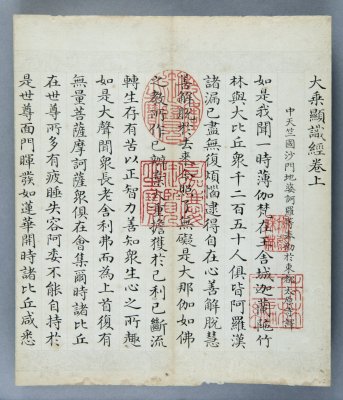 大乘顯識經卷上
中天竺國沙門地婆訶羅奉勅於東都太原寺譯
如是我聞一時薄伽梵在王舍城迦蘭陁竹
林與大比丘衆千二百五十人俱皆阿羅漢
諸漏已盡無復煩惱逮得自在心善解脫慧
善解脫於去來今照了無礙是大那伽如佛
之教所作已辦棄大重擔獲於己利已斷流
轉生存有苦以正智力善知衆生心之所趣
如是大聲聞衆長老舍利弗而為上首復有
無量菩薩摩訶薩衆俱在會集爾時諸比丘
在世尊所多有疲睡失容阿委不能自持於
是世尊面門暉發如蓮華開時諸比丘咸悉